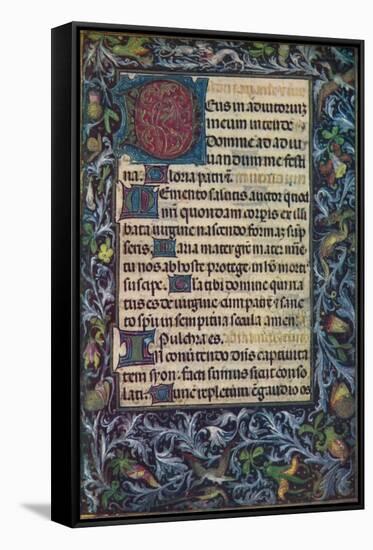 Deus in adiutoriuz
meum intende
Domine ad adiu
uandum me festi
na: Gloria patri et.
Memento salutis auctor quod
nri quondam corpis ex illi
bata uirgine nascendo formaz sup
seris: Maria mater gre mater mie
tu nos ab hoste protege in hora mortis
suscipe. Gloria tibi domine qui na
tus es de uirgine cum patre et sancto
spiritu in sempiterna secula amen.
Pulchra es.
In couertendo dns captiuita
tem syon: facti sumus sicut conso
lati. Tunc repletum e gaudio os